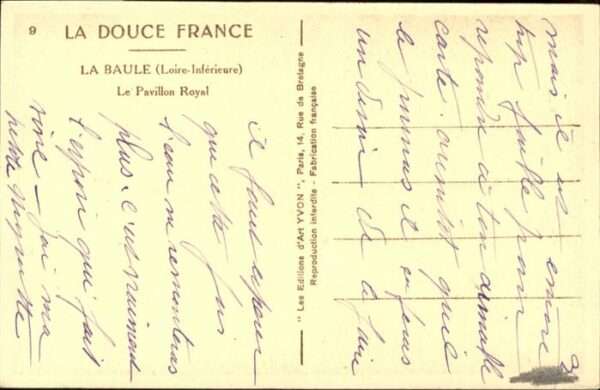 9
LA DOUCE FRANCE
LA BAULE (Loire-Inférieure)
Le Pavillon Royal
" Les Editions d'Art YVON ", Paris, 14, Rue de Bretagne
Reproduction interdite - Fabrication française
mais il est encore
trop faible pour
répondre à ton aimable
carte aussitôt qu'il
le pourra il se fera
un devoir de le faire
il faut espérer
que cette fois
l'eau ne remontera
plus. c'est vraiment
l'espoir qui fait
vivre - j'ai ma
petite